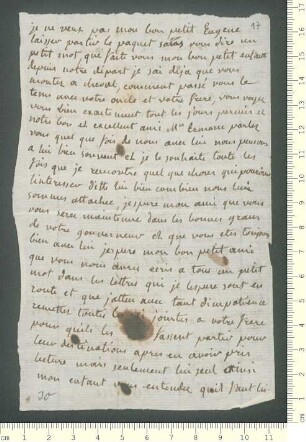 17
je ne veux pas mon bon petit Eugene
laisser partir le paquet sans vous dire un
petit mot que faite vous mon bon petit enfant
depuis notre départ je sai déja que vous
montez a cheval, comment passé vous le
tems avec votre oncle et votre frere, vous voyez
vous bien exactement tout les jours
notre bon et excellent ami Mr parlez
vous quel que fois de nous avec lui nous pensons
a lui bien souvent et je le souhaite toute les
fois que je rencontre quel que chose qui pouroient
l'interesser ditte lui bien combien nous lui
sommes attachée, jespere mon ami que vous
vous serez maintenue dans les bonnes graces
de votre gouverneur et que vous etes toujours
bien avec lui jespere mon bon petit ami
que vous nous aurez ecris a tous un petit
mot dans les lettres qui je lespere sont en
route et que jattens avec tant dimpatience
remettez toutes les jointes a votre frere
pour quil les fassent partir pour
leur destinations apres en avoir pris
lecture mais seulement lui seul
mon enfant vous entendez quil faut lui